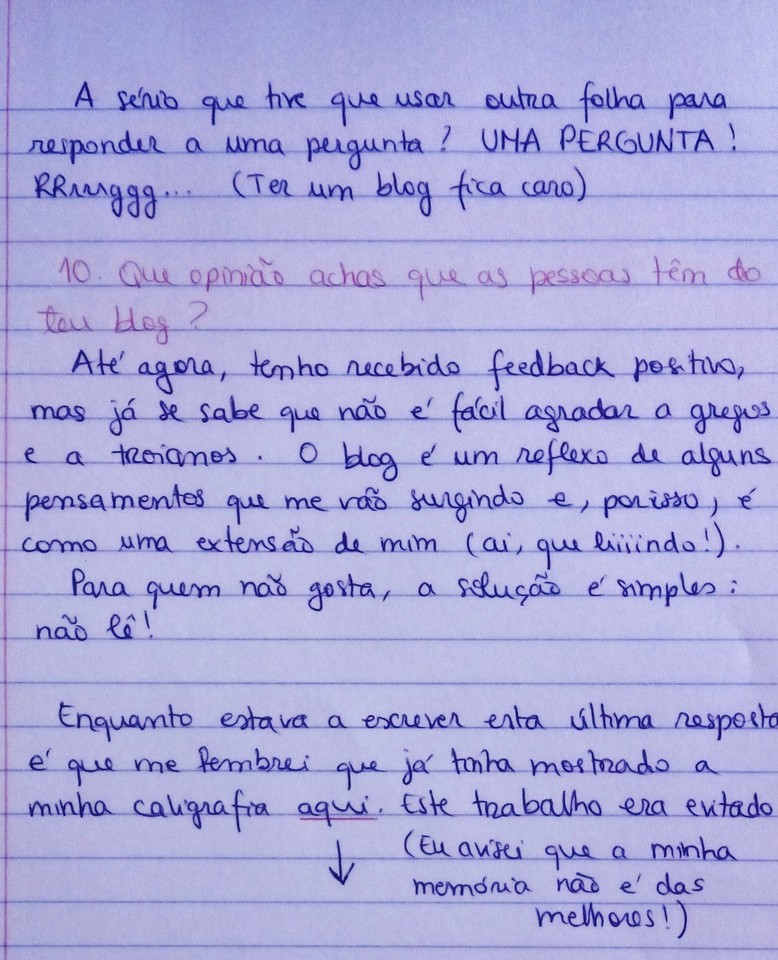 A sério que tive que usar outra folha para
responder a uma pergunta? UMA PERGUNTA!
RRrrrggg... (Ter um blog fica caro)
10. Que opinião achas que as pessoas têm do
teu blog?
Até agora, tenho recebido feedback positivo,
mas já se sabe que não é fácil agradar a gregos
e a troianos. O blog é um reflexo de alguns
pensamentos que me vão surgindo e, por isso, é
como uma extensão de mim (ai, que liiiindo!).
Para quem não gosta, a solução é simples:
não lê!
Enquanto estava a escrever esta última resposta
é que me lembrei que já tinha mostrado a
minha caligrafia aqui. Este trabalho era evitado
↓ (Eu avisei que a minha
memória não é das
melhores!)